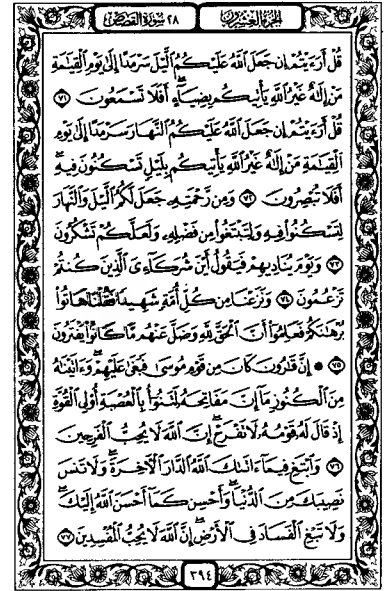 الجزء العشرون ٢٨ سورة القصص
قُلْ أَرَءَيْتُمْ إِن جَعَلَ ٱللَّهُ عَلَيْكُمُ ٱلَّيْلَ سَرْمَدًا إِلَىٰ يَوْمِ ٱلْقِيَٰمَةِ
مَنْ إِلَٰهٌ غَيْرُ ٱللَّهِ يَأْتِيكُم بِضِيَآءٍ أَفَلَا تَسْمَعُونَ ٧١
قُلْ أَرَءَيْتُمْ إِن جَعَلَ ٱللَّهُ عَلَيْكُمُ ٱلنَّهَارَ سَرْمَدًا إِلَىٰ يَوْمِ
ٱلْقِيَٰمَةِ مَنْ إِلَٰهٌ غَيْرُ ٱللَّهِ يَأْتِيكُم بِلَيْلٍ تَسْكُنُونَ فِيهِ
أَفَلَا تُبْصِرُونَ ٧٢ وَمِن رَّحْمَتِهِۦ جَعَلَ لَكُمُ ٱلَّيْلَ وَٱلنَّهَارَ
لِتَسْكُنُوا۟ فِيهِ وَلِتَبْتَغُوا۟ مِن فَضْلِهِۦ وَلَعَلَّكُمْ تَشْكُرُونَ
٧٣ وَيَوْمَ يُنَادِيهِمْ فَيَقُولُ أَيْنَ شُرَكَآءِىَ ٱلَّذِينَ كُنتُمْ
تَزْعُمُونَ ٧٤ وَنَزَعْنَا مِن كُلِّ أُمَّةٍ شَهِيدًا فَقُلْنَا هَاتُوا۟
بُرْهَٰنَكُمْ فَعَلِمُوٓا۟ أَنَّ ٱلْحَقَّ لِلَّهِ وَضَلَّ عَنْهُم مَّا كَانُوا۟ يَفْتَرُونَ
٧٥ إِنَّ قَٰرُونَ كَانَ مِن قَوْمِ مُوسَىٰ فَبَغَىٰ عَلَيْهِمْ وَءَاتَيْنَٰهُ
مِنَ ٱلْكُنُوزِ مَآ إِنَّ مَفَاتِحَهُۥ لَتَنُوٓأُ بِٱلْعُصْبَةِ أُو۟لِى ٱلْقُوَّةِ
إِذْ قَالَ لَهُۥ قَوْمُهُۥ لَا تَفْرَحْ إِنَّ ٱللَّهَ لَا يُحِبُّ ٱلْفَرِحِينَ
٧٦ وَٱبْتَغِ فِيمَآ ءَاتَىٰكَ ٱللَّهُ ٱلدَّارَ ٱلْءَاخِرَةَ وَلَا تَنسَ
نَصِيبَكَ مِنَ ٱلدُّنْيَا وَأَحْسِن كَمَآ أَحْسَنَ ٱللَّهُ إِلَيْكَ
وَلَا تَبْغِ ٱلْفَسَادَ فِى ٱلْأَرْضِ إِنَّ ٱللَّهَ لَا يُحِبُّ ٱلْمُفْسِدِينَ ٧٧
٣٩٤